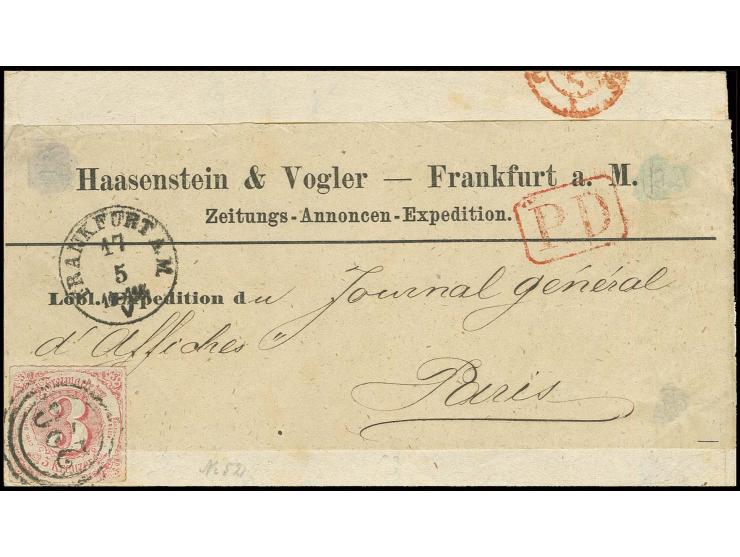 Haasenstein & Vogler — Frankfurt a. M.
Zeitungs-Annoncen-Expedition.
P.D
FRANKFURT A.M.
17
5
Löbl. Expedition du Journal général
d'Affiches"
Paris
3
220
No 52